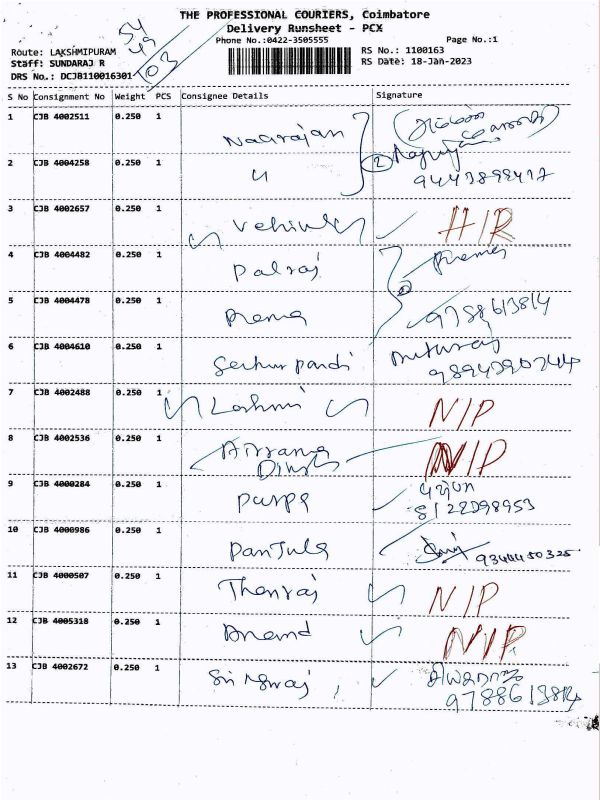 THE PROFESSIONAL COURIERS, Coimbatore
Delivery Runsheet - PCX
Phone No.:0422-3505555 Page No.:1
54
49
03
Route: LAKSHMIPURAM RS No.: 1100163
Staff: SUNDARAJ R RS Date: 18-Jan-2023
DRS No.: DCJB110016301
S No Consignment No Weight PCS Consignee Details Signature
1 CJB 4002511 0.250 1 Nagrajan
2 CJB 4004258 0.250 1 " 2
9443898417
3 CJB 4002657 0.250 1 H/R
4 CJB 4004482 0.250 1 Palraj Prema
5 CJB 4004478 0.250 1 Prema 2 9788613814
6 CJB 4004610 0.250 1
7 CJB 4002488 0.250 1 Lashmi N/P
8 CJB 4002536 0.250 1 N/P
9 CJB 4000284 0.250 1 Puspa
8122098953
10 CJB 4000986 0.250 1 9344450325
11 CJB 4000507 0.250 1 Thenraj N/P
12 CJB 4005318 0.250 1 Anand N/P
13 CJB 4002672 0.250 1
9788613814